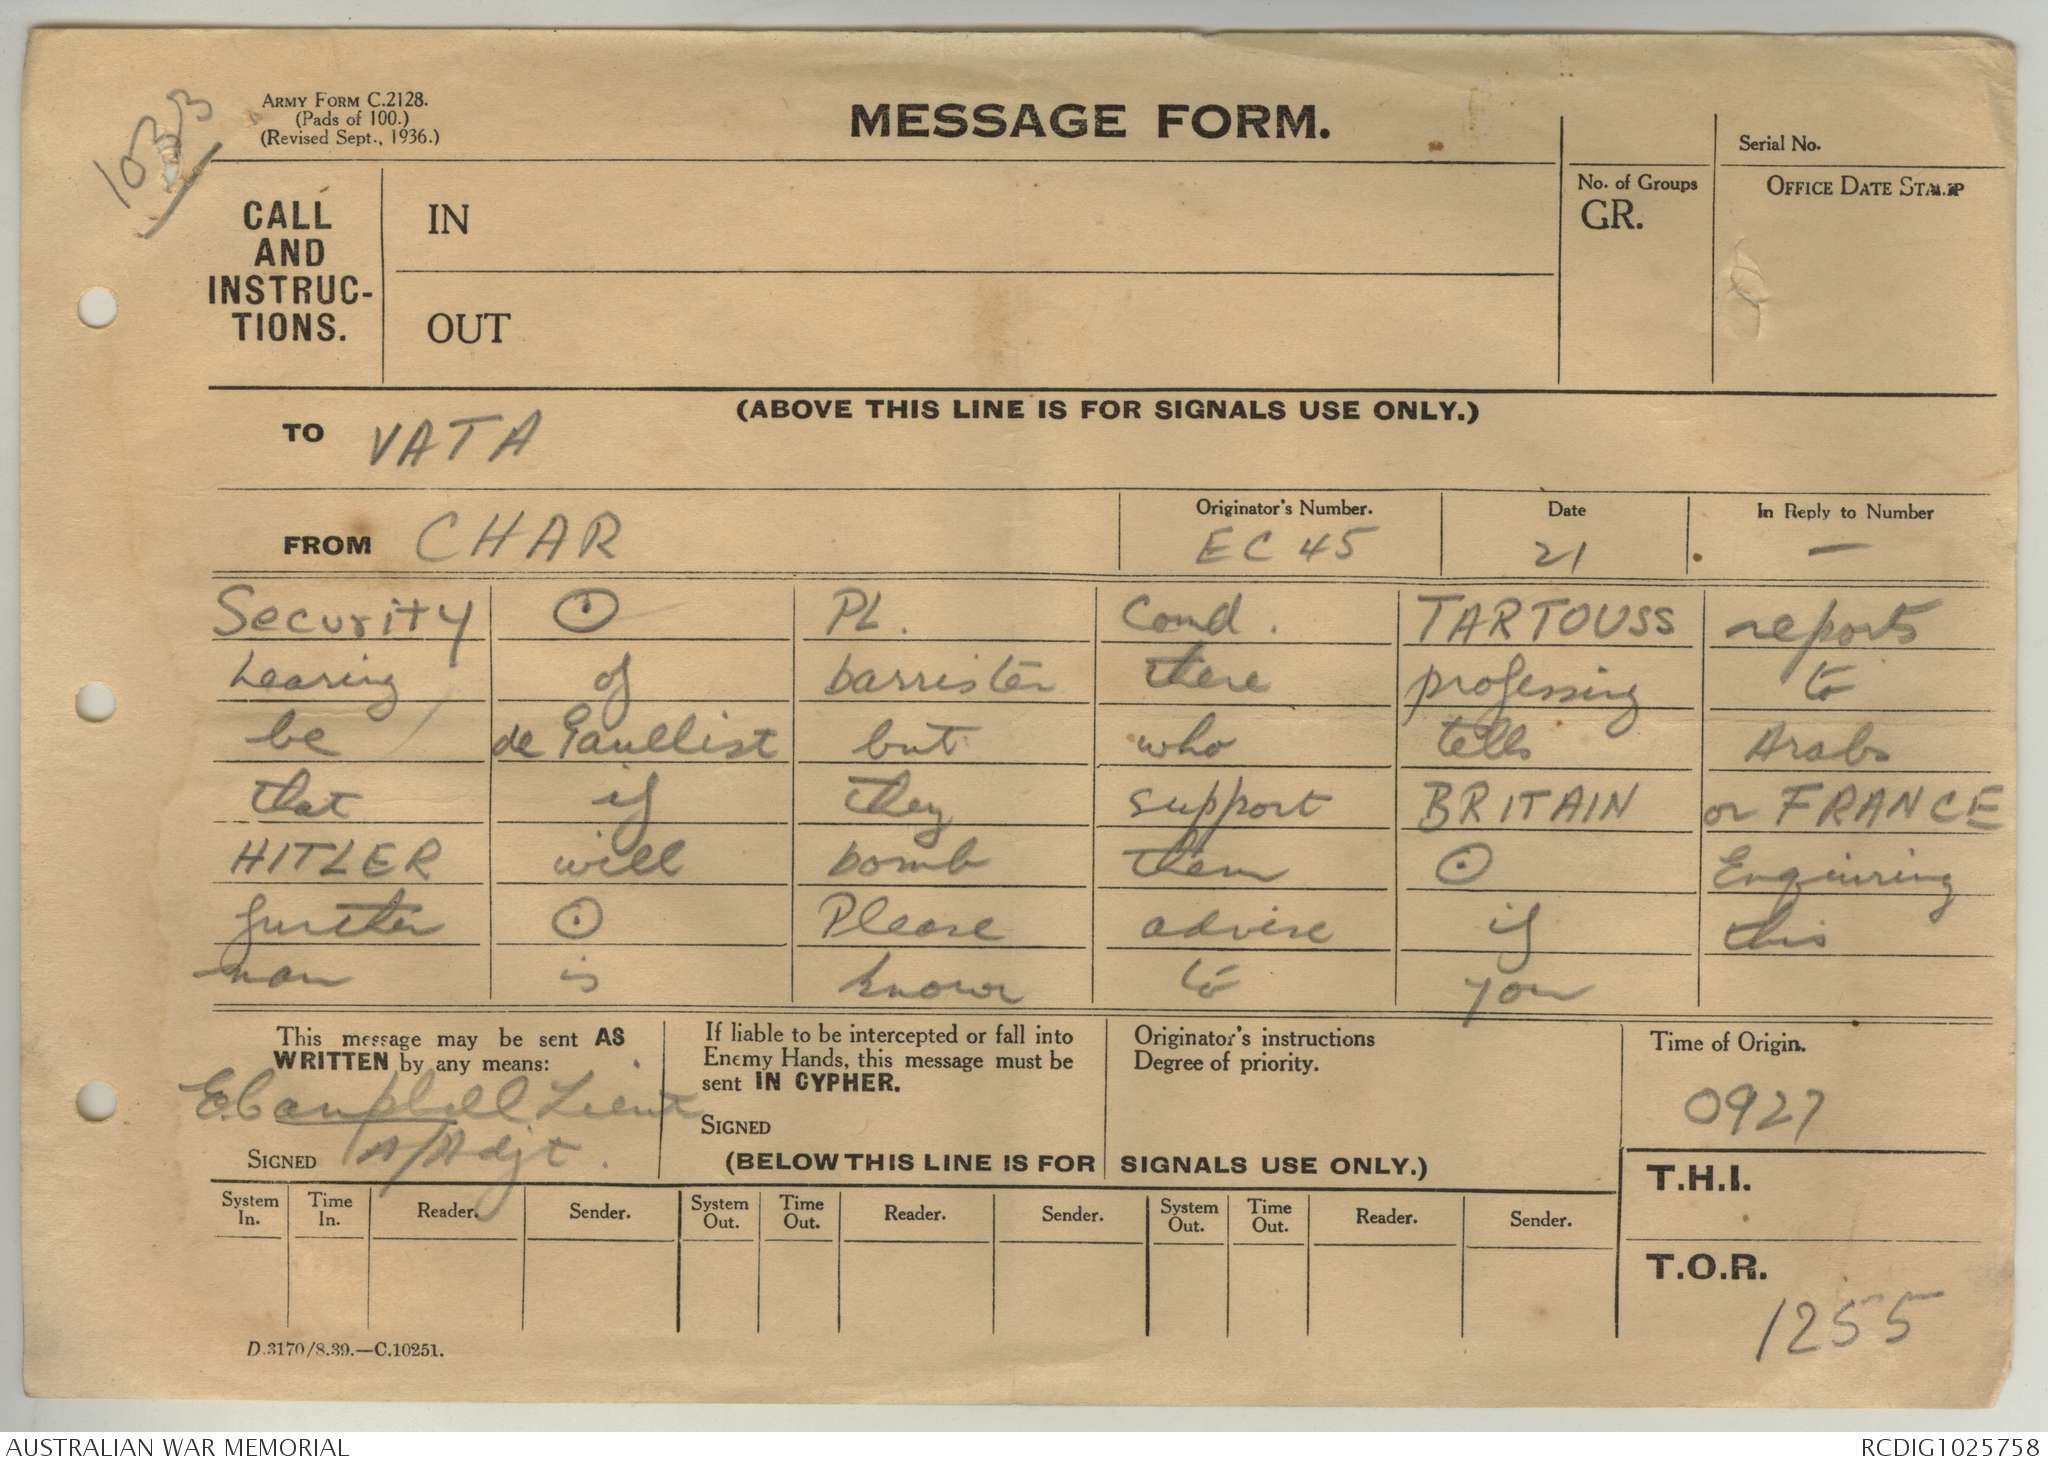 1033
ARMY FORM C.2128.
(Pads of 100.)
(Revised Sept., 1936.)
MESSAGE FORM.
Serial No.
CALL AND INSTRUC-TIONS.
IN
OUT
No. of Groups
GR.
OFFICE DATE STAMP
(ABOVE THIS LINE IS FOR SIGNALS USE ONLY.)
TO VATA
FROM CHAR
Originator's Number.
EC 45
Date
21
In Reply to Number
—
Security ⊙ PL. Comd. TARTOUSS reports
hearing of barrister there professing to
be de Gaullist but who tells Arabs
that if they support BRITAIN or FRANCE
HITLER will bomb them ⊙ Enquiring
further ⊙ Please advise if this
man is known to you
This message may be sent AS
WRITTEN by any means:
E.Campbell Lieut
SIGNED A/Adjt.
If liable to be intercepted or fall into
Enemy Hands, this message must be
sent IN CYPHER.
SIGNED
Originator's instructions
Degree of priority.
Time of Origin.
0927
(BELOW THIS LINE IS FOR SIGNALS USE ONLY.)
T.H.I.
System In. Time In. Reader. Sender. System Out. Time Out. Reader. Sender. System Out. Time Out. Reader. Sender.
T.O.R.
1255
D.3170/8.39.—C.10251.
AUSTRALIAN WAR MEMORIAL
RCDIG1025758